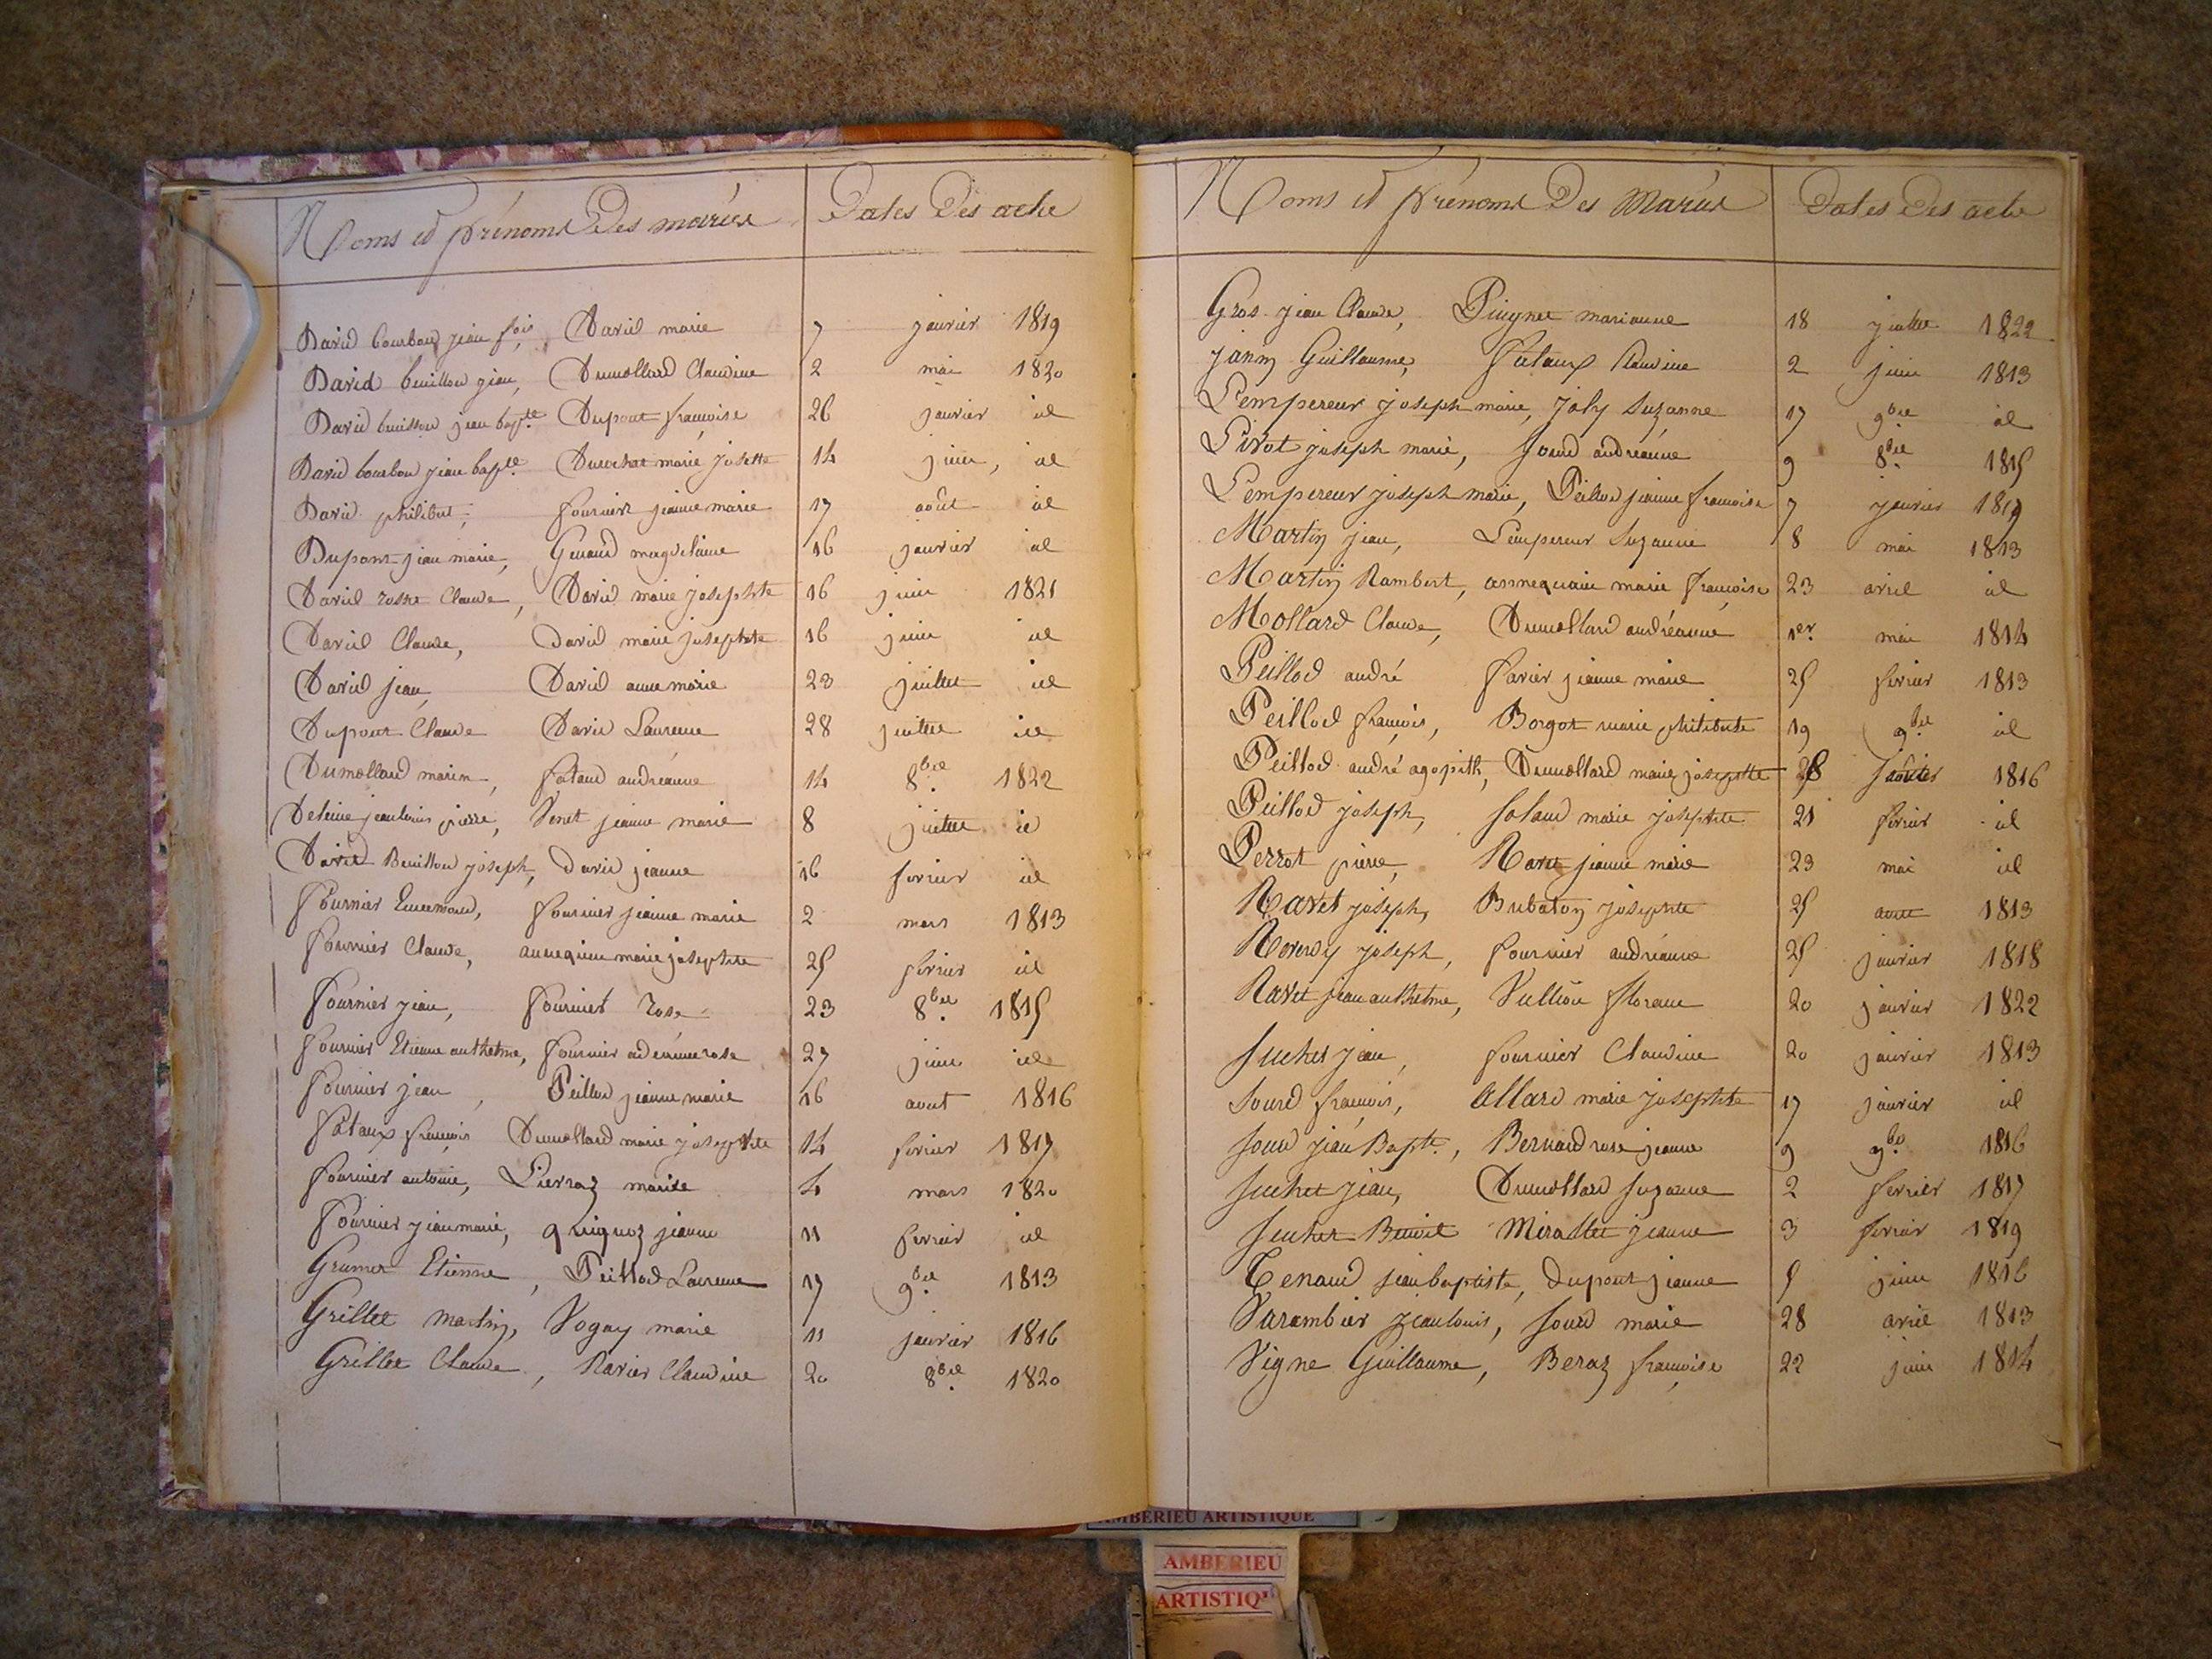 Noms et prénoms des mariés Dates des acte
David bourbon jean fois David marie 7 janvier 1819
David buillon jean, Dumollard Claudine 2 mai 1820
David buisson jean bapte Dupont françoise 26 janvier id
David bourbon jean bapte marie josette 14 juin, id
David philibert, fournier jeanne marie 17 août id
Dupont jean marie, magdelaine 16 janvier id
David Claude, David marie josephte 16 juin 1821
David Claude, David marie josephte 16 juin id
David jean, David anne marie 23 juillet id
Dupont Claude David Laurence 28 juillet id
Dumollard marin, andréanne 14 8bre 1822
jean louis pierre, Venet jeanne marie 8 juillet id
David Bouillon joseph, David jeanne 16 fevrier id
Fournier Ennemond, fournier jeanne marie 2 mars 1813
Fournier Claude, annequin marie josephte 25 fevrier id
Fournier jean, fournier rose 23 8bre 1815
Fournier Etienne anthelme, fournier rose 27 juin id
Fournier jean, Peillod jeanne marie 16 aout 1816
françois Dumollard marie josephte 14 fevrier 1817
Fournier antoine, marie 4 mars 1820
Fournier jean marie, quiquoz jeanne 11 fevrier id
Etienne, Peillod Laurence 17 9bre 1813
Grillet martin, Vogay marie 11 janvier 1816
Grillet Claude, Claudine 20 8bre 1820
Noms et prénoms des mariés Dates des acte
Gros jean Claude, marianne 18 juillet 1822
Guillaume, Claudine 2 juin 1813
Lempereur joseph marie, joly Suzanne 17 9bre id
joseph marie, Sourd andréanne 9 8bre 1815
Lempereur joseph marie, Peillod jeanne françoise 7 janvier 1819
Martin jean, Lempereur Suzanne 8 mai 1813
Martin Rambert, annequin marie françoise 23 avril id
Mollard Claude, Dumollard andréanne 1er mai 1814
Peillod andré jeanne marie 25 fevrier 1813
Peillod françois, Borgot marie philiberte 19 9bre id
Peillod andré agapith, Dumollard marie josephte 1816
Peillod joseph, marie josephte 21 fevrier id
Perrot pierre, Ravet jeanne marie 23 mai id
Ravet joseph, Bribaton josephte 25 aout 1813
joseph, fournier andréanne 25 janvier 1818
Ravet jean anthelme, 20 janvier 1822
Suchet jean, fournier Claudine 20 janvier 1813
Sourd françois, Allard marie josephte 17 janvier id
Sourd jean Bapte, Bernard rose jeanne 9 9bre 1816
Suchet jean, Dumollard Suzanne 2 fevrier 1817
Suchet Benoit jeanne 3 fevrier 1819
Tenand jean baptiste, dupont jeanne 5 juin 1816
Varambier jean louis, Sourd marie 28 avril 1813
Vigne Guillaume, Beraz françoise 22 juin 1814
AMBERIEU ARTISTIQUE
AMBERIEU